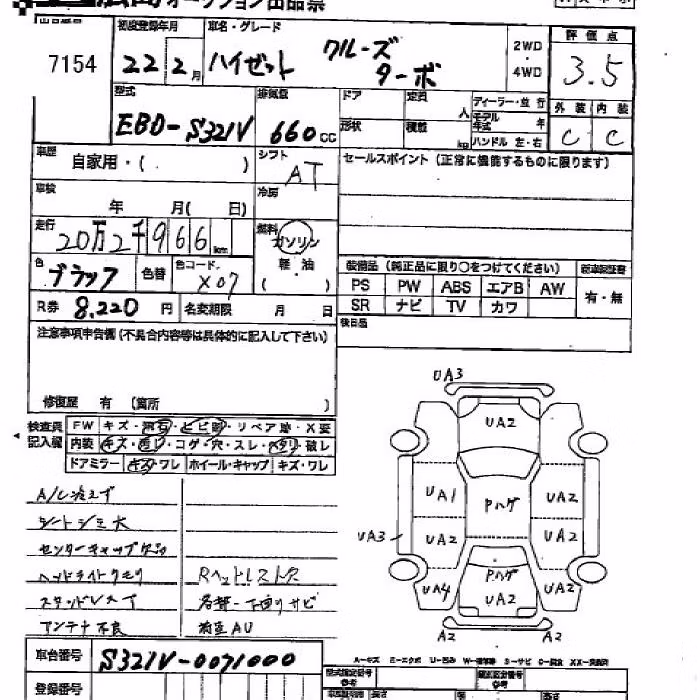 オークション出品票
出品番号 初度登録年月 車名・グレード 評価点
7154 22年2月 ハイゼット クルーズ ターボ 2WD・4WD 3.5
型式 排気量 ドア 定員 人 ディーラー・並行 外装 内装
EBD-S321V 660cc 形状 積載 kg モデル年式 年 C C
ハンドル 左・右
車歴 自家用・( ) シフト AT セールスポイント (正常に機能するものに限ります)
車検 年 月( 日) 冷房
走行 20万2千966km 燃料 ガソリン 軽・油 ( )
色 ブラック 色替 色コード X07
装備品 (純正品に限り○をつけてください) 新車保証書
PS PW ABS エアB AW 有・無
SR ナビ TV カワ
R券 8,220円 名変期限 月 日
後日品
注意事項申告欄 (不具合内容等は具体的に記入して下さい)
修復歴 有 (箇所 )
検査員記入欄 FW キズ・飛石・ヒビ・リペア跡・X要
内装 キズ・・コゲ・穴・スレ・ヘタリ・破レ
ドアミラー キズ・ワレ ホイール・キャップ キズ・ワレ
A/C冷えず
シートシミ大
センターキャップ欠品
ヘッドライトクモリ Rヘッドレスト欠
各部・下回りサビ
アンテナ不良
UA3
UA2
UA1 Pハゲ UA2
UA3 UA2 UA2
Pハゲ
UA4 UA2 UA2
A2 A2
車台番号 S321V-0071000
A-キズ E-エクボ U-凹み S-サビ C-腐食
登録番号 型式指定番号 類別区分番号